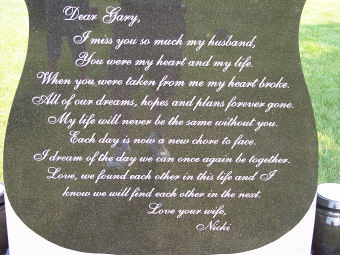 Dear Gary,
I miss you so much my husband,
You were my heart and my life.
When you were taken from me my heart broke.
All of our dreams, hopes and plans forever gone.
My life will never be the same without you.
Each day is now a new chore to face.
I dream of the day we can once again be together.
Love, we found each other in this life and I
know we will find each other in the next.
Love your wife,
Nicki